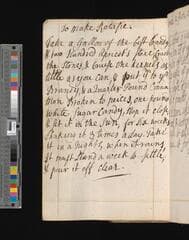 To make Ratafie.
Take a Gallon of the best Brandy
& two Hundred Apricot Stons
the Stones & bruise
little as you can, & put it to yr
Brandy wth a Quarter Pound
mon Broken to peices, one pound
White Sugar Candy, stop it close
& set it in the Sun, for Six weeks
Shakeing it times a day, take
it in a nights, when it rains,
it must stand a week to settle,
& pour it off clear.